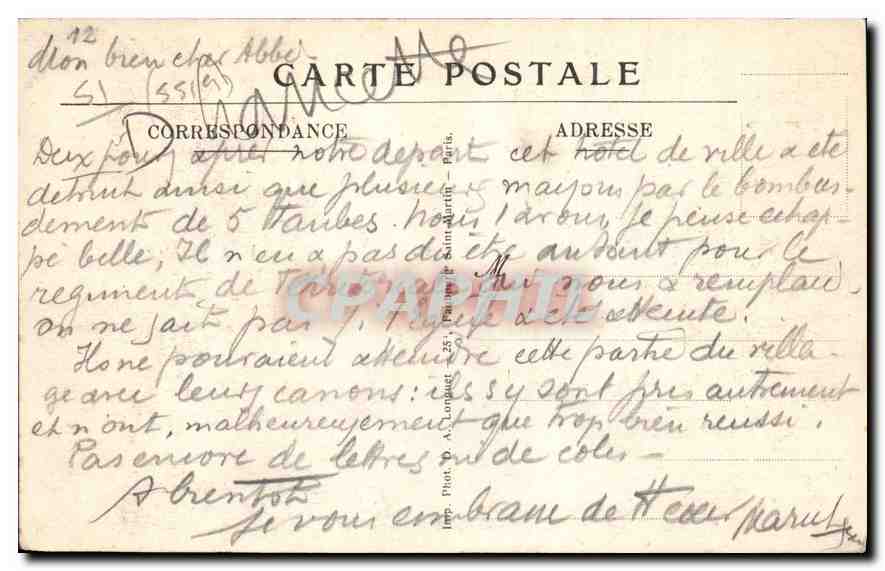 12
Mon bien cher Abbé
CARTE POSTALE
CORRESPONDANCE
ADRESSE
Deux jours après notre depart cet hotel de ville a été
detruit ainsi que plusieurs maisons par le bombar-
dement de 5 Taubes. Nous l'avons, je pense echap-
pé belle, Il n'en a pas du être autant pour le
regiment de qui nous a remplacé,
on ne sait pas si l'église a été atteinte.
Ils ne pouvaient atteindre cette partie du villa-
ge avec leurs canons: ils s'y sont pris autrement
et n'ont, malheureusement que trop bien réussi.
Pas encore de lettres ni de colis -
A bientôt
Je vous embrasse de tt coeur
M
CPAPHIL
Imp. Phot. D. A. Longuet - 25, Faubourg Saint-Martin - Paris.